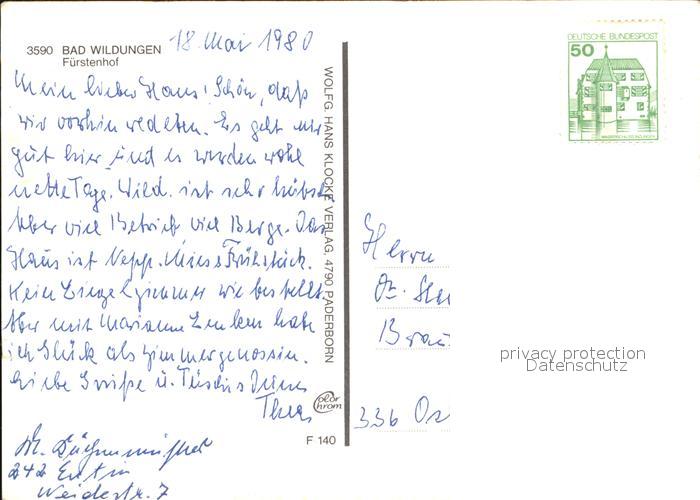 18. Mai 1980
3590 BAD WILDUNGEN
Fürstenhof
Mein lieber Hans! Schön, daß
wir vorhin redeten. Es geht mir
gut hier und es werden wohl
nette Tage. Wild. ist sehr hübsch
Aber viel Betrieb viel Berge. Das
Haus ist Nepp. Mieses Frühstück.
Kein Einzelzimmer wie bestellt.
Aber mit Marianne habe
ich Glück als Zimmergenossin.
Liebe Grüße u. Tschüs Deine
Thea
242 Eutin
Weidestr. 7
WOLFG. HANS KLOCKE VERLAG, 4790 PADERBORN
color chrom
F 140
DEUTSCHE BUNDESPOST
50
WASSERSCHLOSS INZLINGEN
Herrn
Dr.
336
privacy protection
Datenschutz